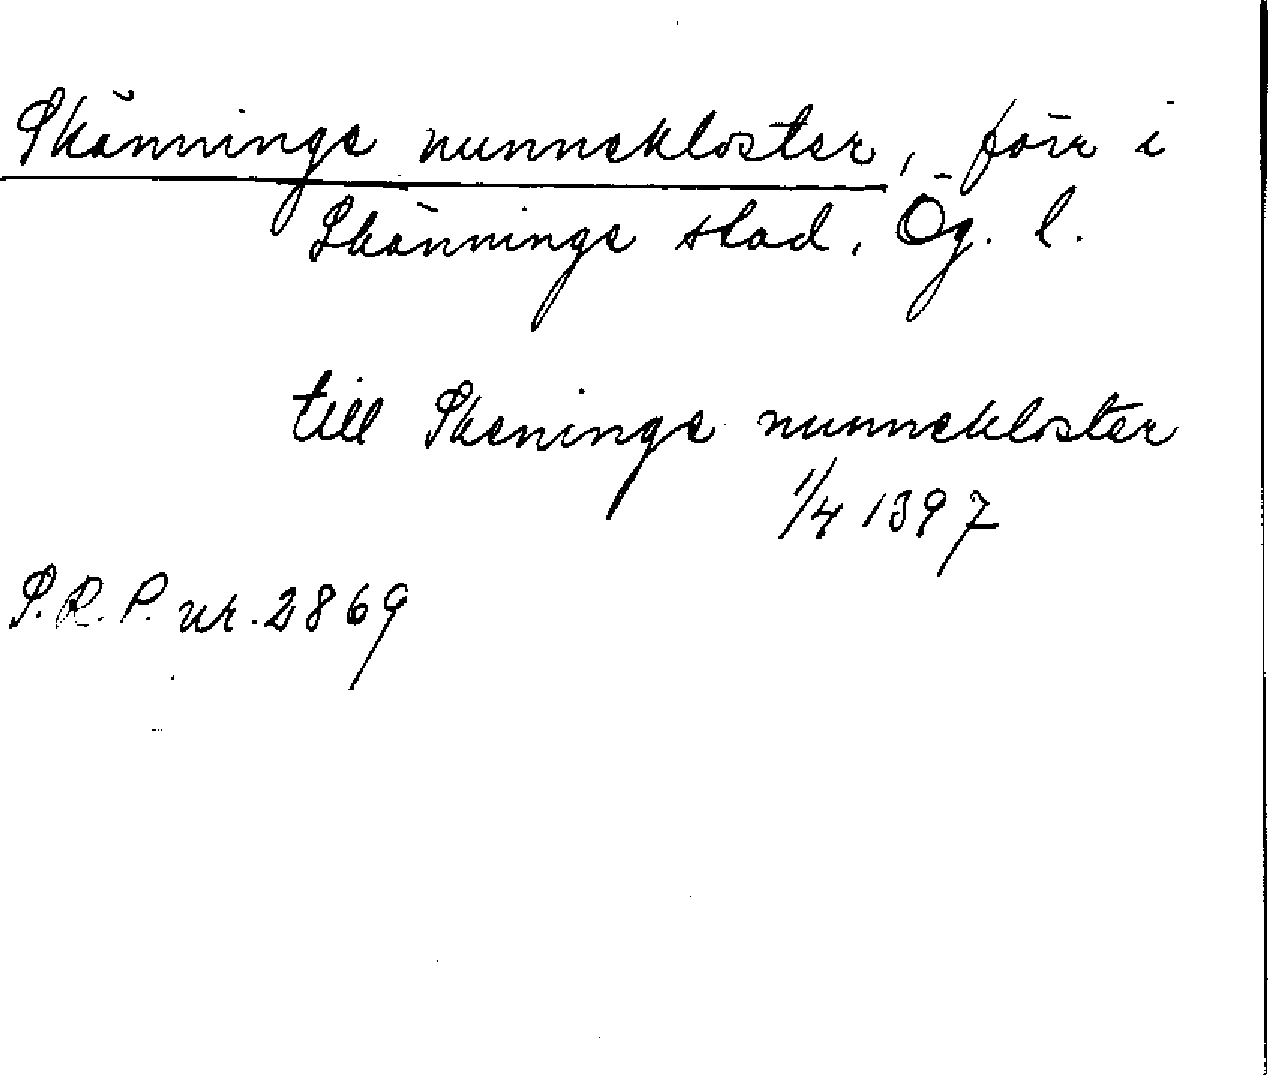 Skänninge nunnekloster, förr i
Skänninge stad, Ög. l.
till Skeninge nunnekloster
1/4 1397
S.R.P. nr. 2869